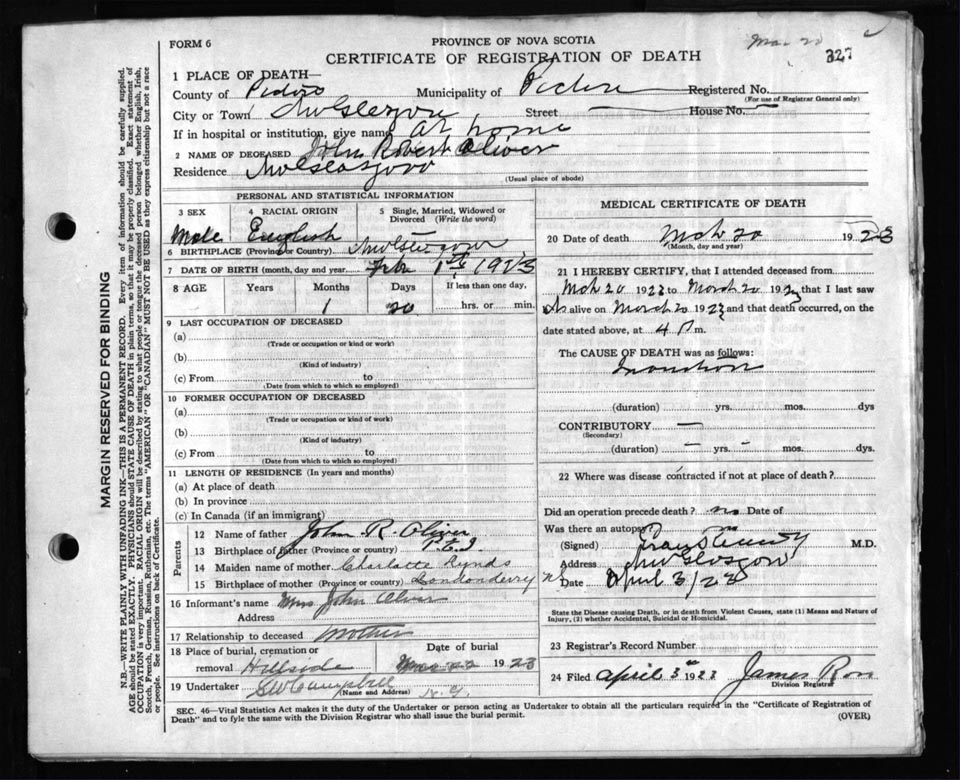 FORM 6
PROVINCE OF NOVA SCOTIA
CERTIFICATE OF REGISTRATION OF DEATH
327
1 PLACE OF DEATH—
County of Pictou Municipality of Pictou Registered No.
(For use of Registrar General only)
City or Town New Glasgow Street — House No. —
If in hospital or institution, give name At home
2 NAME OF DECEASED John Robert Oliver
Residence New Glasgow
(Usual place of abode)
PERSONAL AND STATISTICAL INFORMATION
3 SEX 4 RACIAL ORIGIN 5 Single, Married, Widowed or Divorced (Write the word)
Male English —
6 BIRTHPLACE (Province or Country) New Glasgow
7 DATE OF BIRTH (month, day and year) Feb 1st 1923
8 AGE Years Months Days If less than one day,
1 20 hrs. or min.
9 LAST OCCUPATION OF DECEASED
(a)
(Trade or occupation or kind or work)
(b)
(Kind of industry)
(c) From to
(Date from which to which so employed)
10 FORMER OCCUPATION OF DECEASED
(a)
(Trade or occupation or kind of work)
(b)
(Kind of industry)
(c) From to
(Date from which to which so employed)
11 LENGTH OF RESIDENCE (In years and months)
(a) At place of death
(b) In province
(c) In Canada (if an immigrant)
Parents
12 Name of father John R. Oliver
13 Birthplace of father (Province or country) P.E.I.
14 Maiden name of mother Charlotte Lynds
15 Birthplace of mother (Province or country) Londonderry N.S.
16 Informant's name Mrs John Oliver
Address
17 Relationship to deceased Mother
18 Place of burial, cremation or removal Hillside
Date of burial
22 1923
19 Undertaker Campbell N.G.
(Name and Address)
MEDICAL CERTIFICATE OF DEATH
20 Date of death Mch 20 1923
(Month, day and year)
21 I HEREBY CERTIFY, that I attended deceased from
Mch 20 1923 to March 20 1923 that I last saw
alive on March 20 1923 and that death occurred, on the
date stated above, at 4 P m.
The CAUSE OF DEATH was as follows:
Inanition
(duration) yrs. mos. dys
CONTRIBUTORY —
(Secondary)
(duration) — yrs. — mos. dys
22 Where was disease contracted if not at place of death?
Did an operation precede death? no Date of
Was there an autopsy?
(Signed) M.D.
Address New Glasgow
Date April 3/23
State the Disease causing Death, or in death from Violent Causes, state (1) Means and Nature of
Injury, (2) whether Accidental, Suicidal or Homicidal.
23 Registrar's Record Number
24 Filed April 3rd 1923 James
Division Registrar
SEC. 46—Vital Statistics Act makes it the duty of the Undertaker or person acting as Undertaker to obtain all the particulars required in the "Certificate of Registration of
Death" and to fyle the same with the Division Registrar who shall issue the burial permit. (OVER)
MARGIN RESERVED FOR BINDING
N.B.—WRITE PLAINLY WITH UNFADING INK—THIS IS A PERMANENT RECORD. Every item of information should be carefully supplied.
AGE should be stated EXACTLY. PHYSICIANS should STATE CAUSE OF DEATH in plain terms, so that it may be properly classified. Exact statement of
OCCUPATION is very important. RACIAL ORIGIN will be described by stating to what people or tongue the deceased person belonged whether English, Irish,
Scotch, French, German, Russian, Ruthenian, etc. The terms "AMERICAN" OR "CANADIAN" MUST NOT BE USED as they express citizenship but not a race
or people. See instructions on back of Certificate.